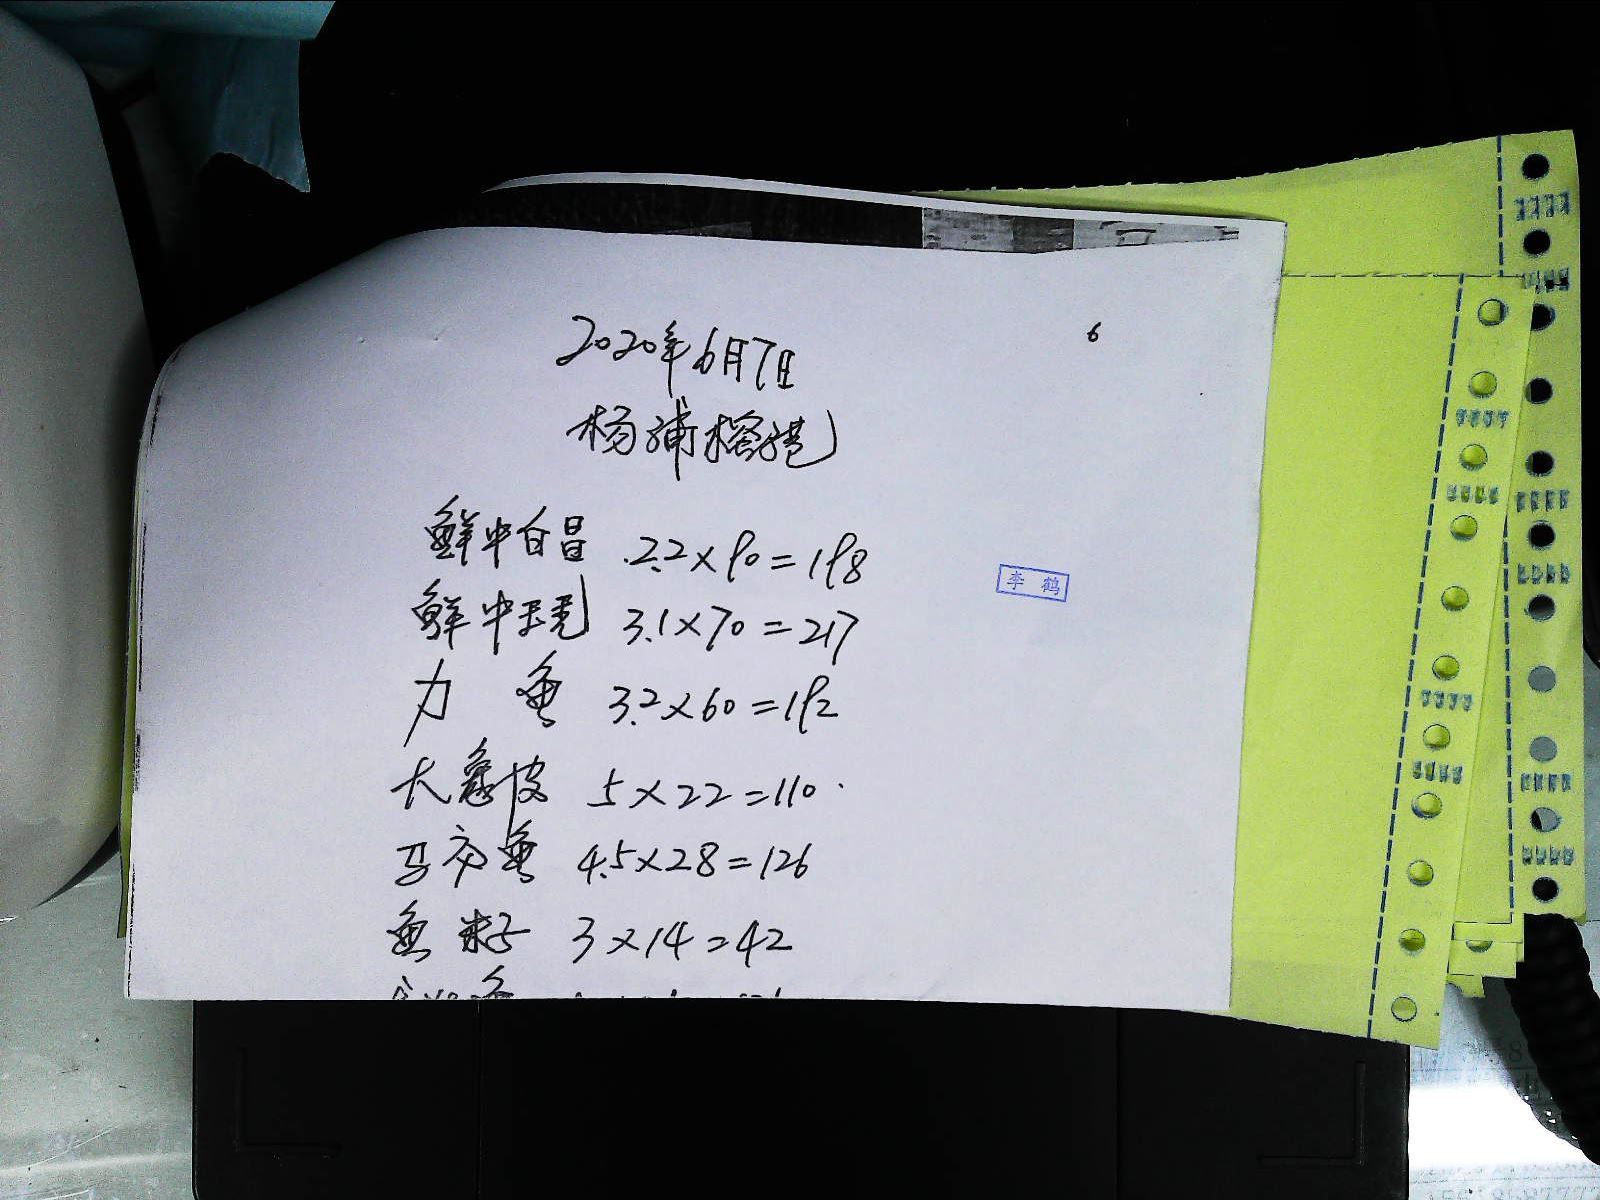 2020年6月7日
6
杨浦榕港
鲜中白昌 2.2×90=198
李鹤
鲜中 3.1×70=217
力鱼 3.2×60=192
大鱼皮 5×22=110
马交鱼 4.5×28=126
鱼籽 3×14=42